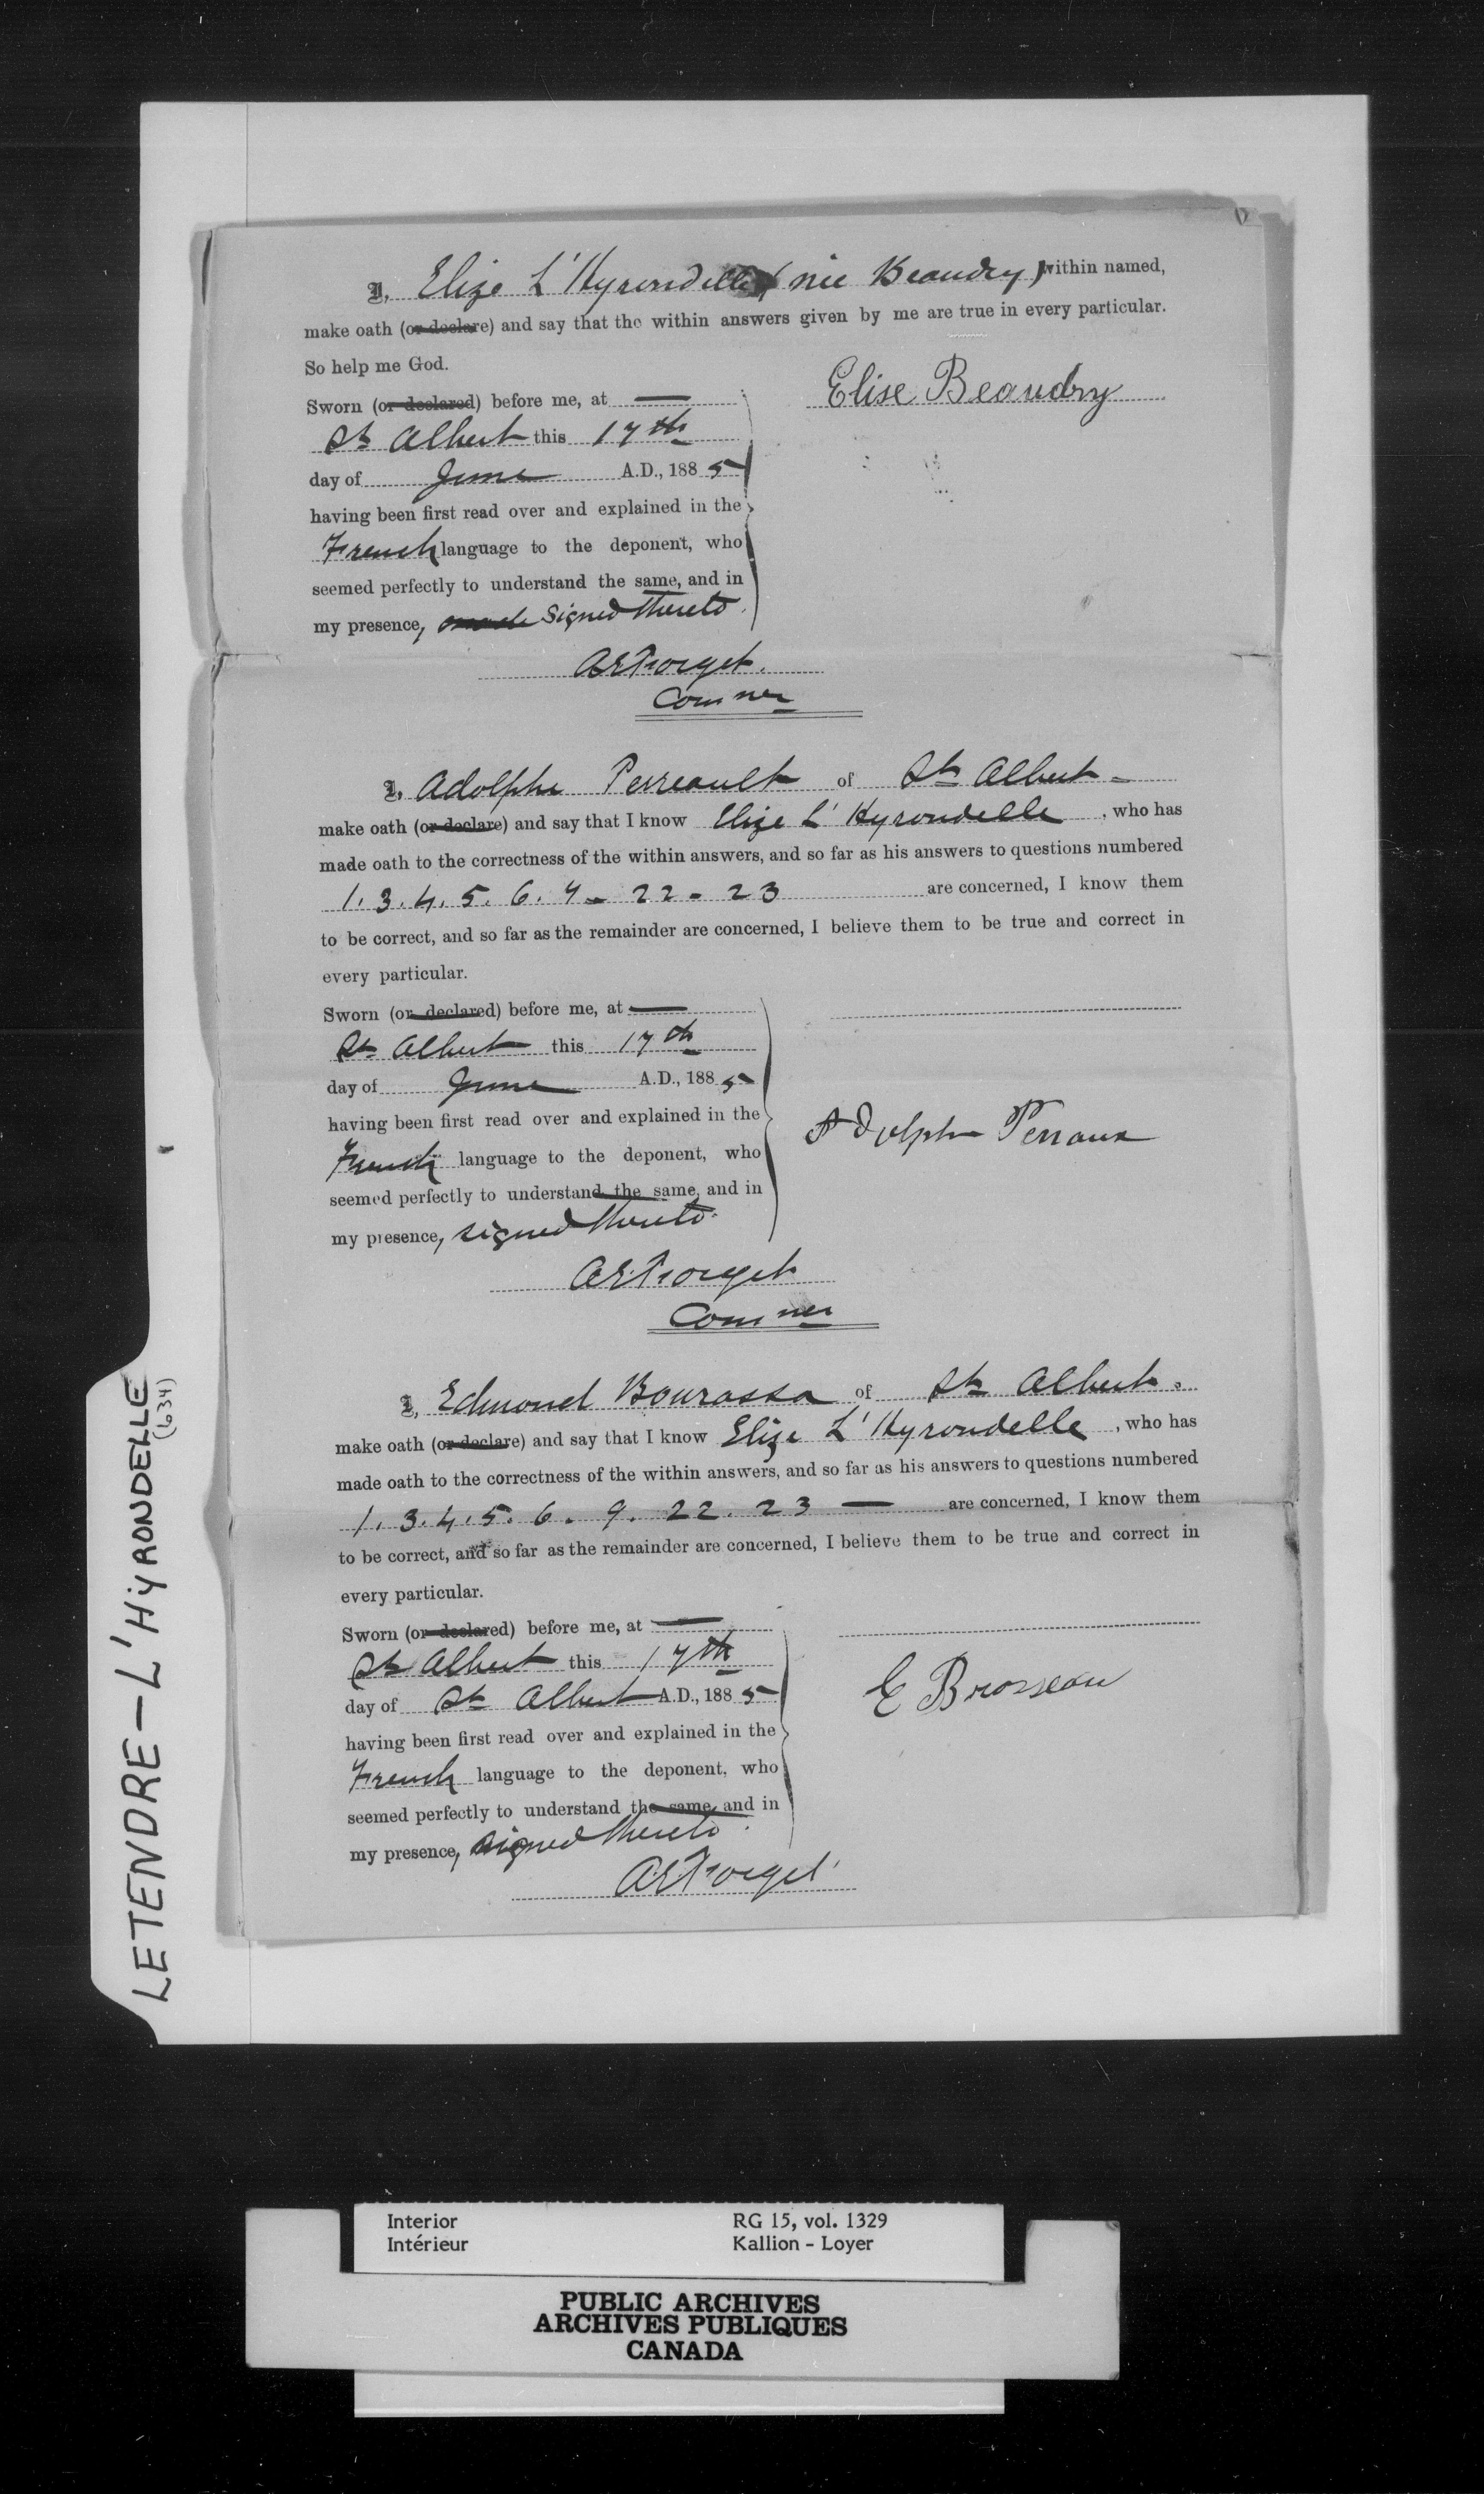 I, Elize L'Hyrondelle (née Beaudry) within named,
make oath (or declare) and say that the within answers given by me are true in every particular.
So help me God.
Elise Beaudry
Sworn (or declared) before me, at —
St Albert this 17th
day of June A.D., 1885
having been first read over and explained in the
French language to the deponent, who
seemed perfectly to understand the same, and in
my presence, made Signed thereto.
AEForget.
Commer
I, Adolphe Perreault of St Albert -
make oath (or declare) and say that I know Elize L'Hyrondelle, who has
made oath to the correctness of the within answers, and so far as his answers to questions numbered
1. 3. 4. 5. 6. 9 - 22 - 23 are concerned, I know them
to be correct, and so far as the remainder are concerned, I believe them to be true and correct in
every particular.
Sworn (or declared) before me, at —
St Albert this 17th
day of June A.D., 1885
having been first read over and explained in the
Adolphe Perraux
French language to the deponent, who
seemed perfectly to understand the same, and in
my presence, signed thereto.
AEForget
Commer
I, Edmond Bourassa of St Albert.
make oath (or declare) and say that I know Elize L'Hyrondelle, who has
made oath to the correctness of the within answers, and so far as his answers to questions numbered
1. 3. 4. 5. 6. 9. 22. 23 — are concerned, I know them
to be correct, and so far as the remainder are concerned, I believe them to be true and correct in
every particular.
Sworn (or declared) before me, at —
St Albert this 17th
day of St Albert A.D., 1885
E Brosseau
having been first read over and explained in the
French language to the deponent, who
seemed perfectly to understand the same, and in
my presence, signed thereto.
AEForget
LETENDRE - L'HYRONDELLE
(634)
Interior RG 15, vol. 1329
Intérieur Kallion - Loyer
PUBLIC ARCHIVES
ARCHIVES PUBLIQUES
CANADA